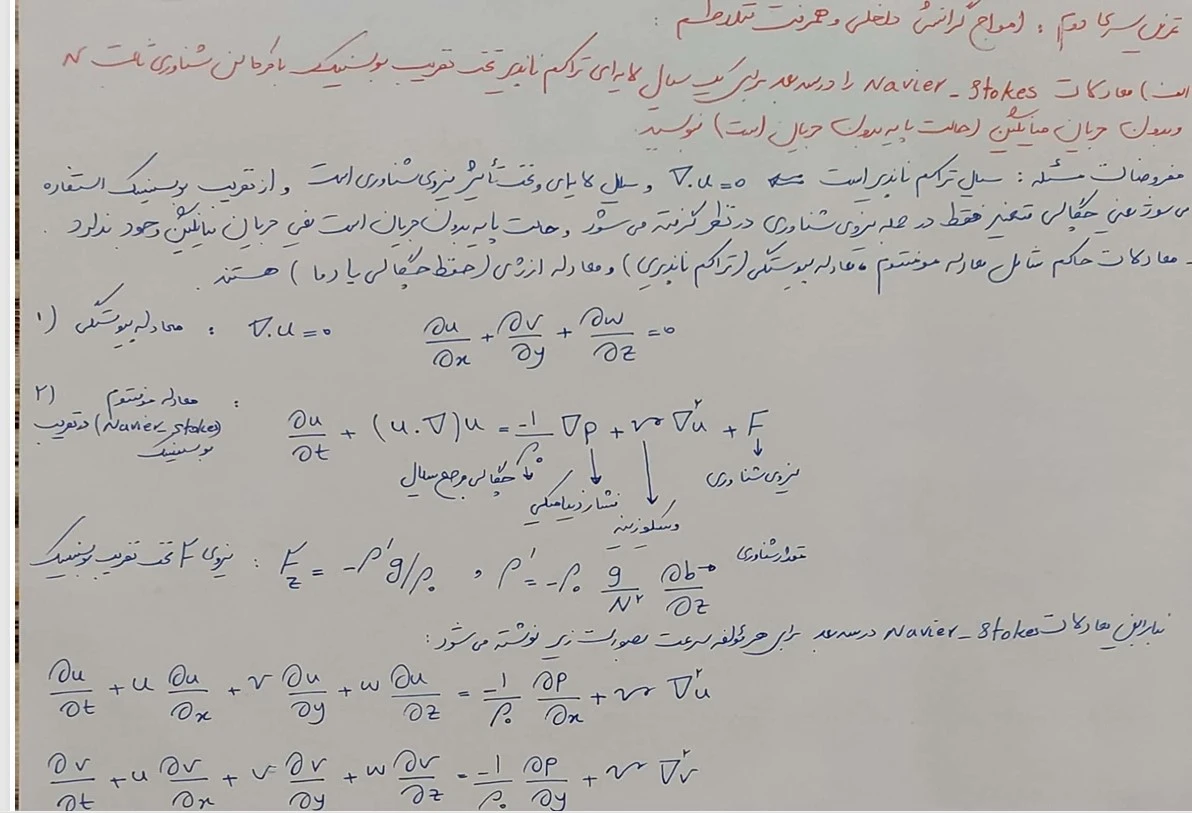 تمرین سری دوم : امواج گرانشی داخلی و معرفت تلاطم :
الف) معادلات Navier_Stokes را در سه بعد برای یک سیال لایه‌ای تراکم ناپذیر تحت تقریب بوسینسک با فرکانس شناوری ثابت N
و بدون جریان میانگین (حالت پایه بدون جریان است) بنویسید.
مفروضات مسئله : سیال تراکم ناپذیر است ⇐ ∇.u=0 و سیال لایه‌ای و تحت تأثیر نیروی شناوری است و از تقریب بوسینسک استفاده
می شود یعنی چگالی متغیر فقط در جمله نیروی شناوری در نظر گرفته می شود و حالت پایه بدون جریان است یعنی جریان میانگین وجود ندارد .
_ معادلات حاکم شامل معادله مومنتوم ، معادله پیوستگی (تراکم ناپذیری) و معادله انرژی (حفظ چگالی یا دما) هستند .
۱) معادله پیوستگی : ∇.u=0 ∂u/∂x + ∂v/∂y + ∂w/∂z =0
۲) معادله مومنتوم :
(Navier_Stokes) در تقریب
بوسینسک
∂u/∂t + (u.∇)u = -1/ρ₀ ∇p + ν ∇²u + F
چگالی مرجع سیال
فشار دینامیکی
ویسکوزیته
نیروی شناوری
نیروی F تحت تقریب بوسینسک : F_z = -ρ'g/ρ₀ , ρ' = -ρ₀ g/N² ∂b/∂z → مقدار شناوری
بنابراین معادلات Navier_Stokes در سه بعد برای هر مؤلفه سرعت بصورت زیر نوشته می شود :
∂u/∂t + u ∂u/∂x + v ∂u/∂y + w ∂u/∂z = -1/ρ₀ ∂p/∂x + ν ∇²u
∂v/∂t + u ∂v/∂x + v ∂v/∂y + w ∂v/∂z = -1/ρ₀ ∂p/∂y + ν ∇²v